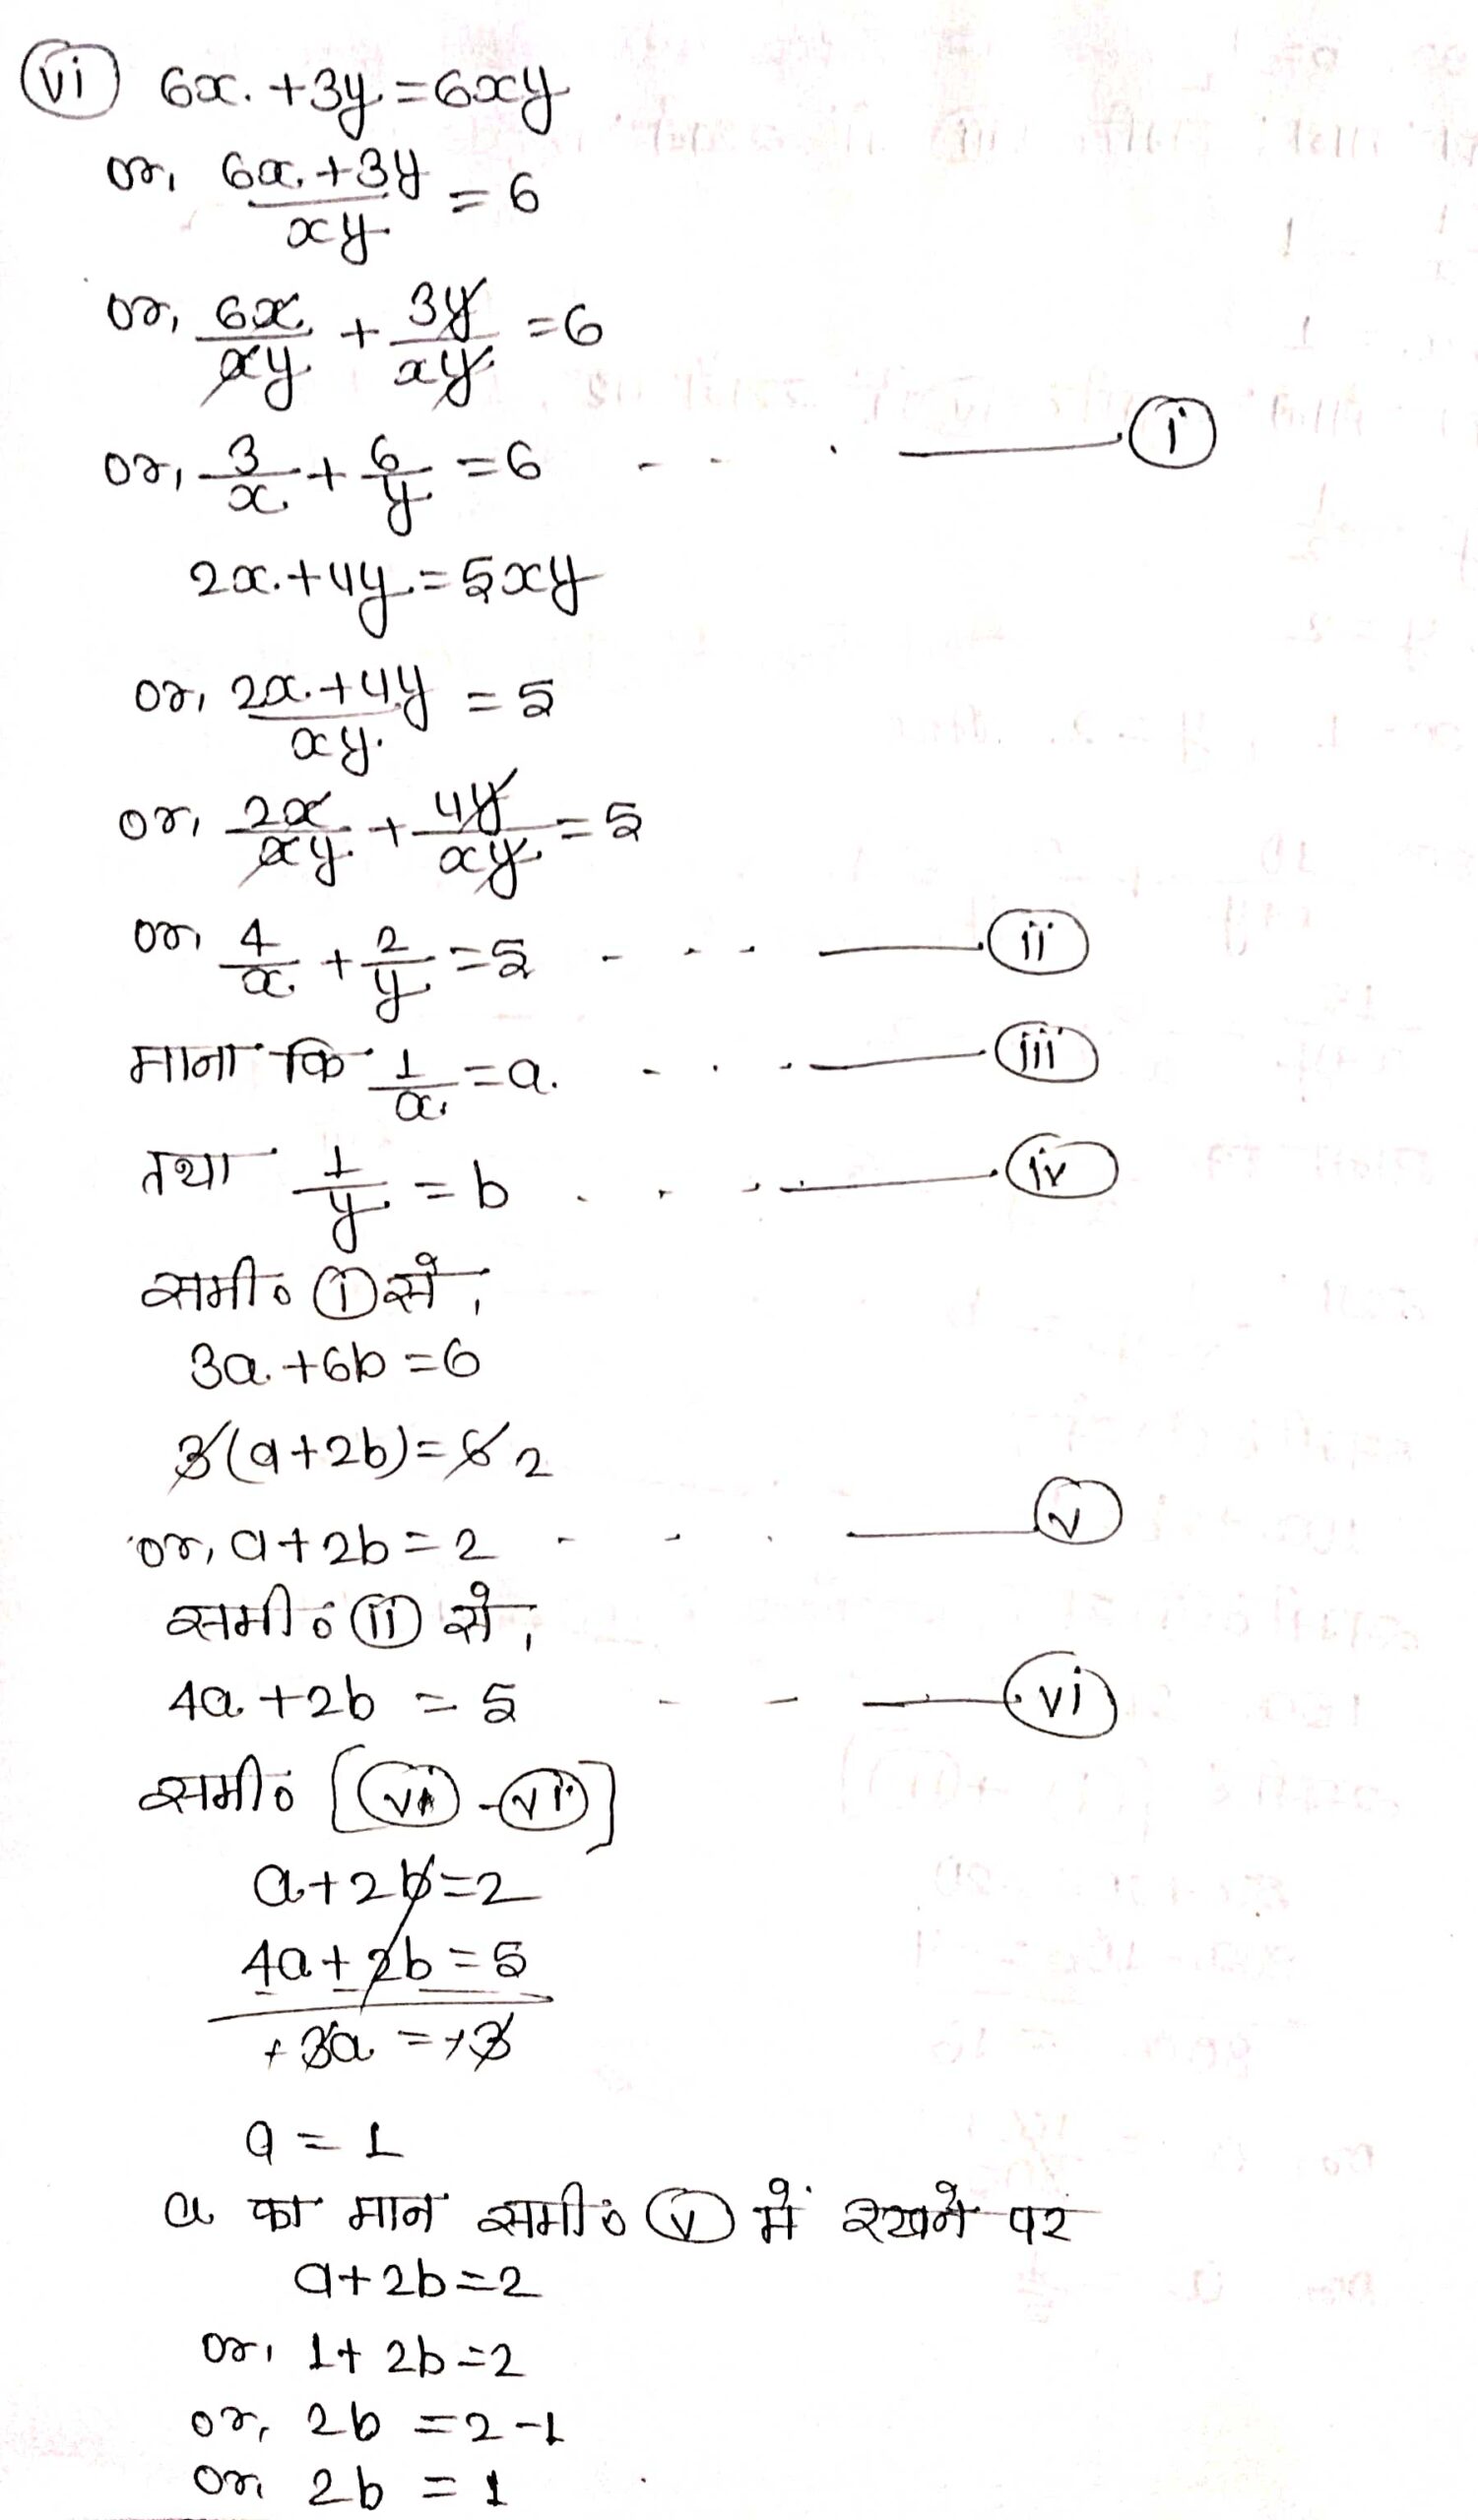 (vi) 6x + 3y = 6xy
or, (6x + 3y)/xy = 6
or, 6x/xy + 3y/xy = 6
or, 3/x + 6/y = 6 - - . —— (i)
2x + 4y = 5xy
or, (2x + 4y)/xy = 5
or, 2x/xy + 4y/xy = 5
or, 4/x + 2/y = 5 - - - —— (ii)
माना कि 1/x = a. - . . —— (iii)
तथा 1/y = b . . . —— (iv)
समी० (i) से,
3a + 6b = 6
3(a + 2b) = 6 2
or, a + 2b = 2 - - . —— (v)
समी० (ii) से,
4a + 2b = 5 - - —— (vi)
समी० [(vi) - (vii)]
a + 2b = 2
4a + 2b = 5
- - -
+3a = +3
a = 1
a का मान समी० (v) में रखने पर
a + 2b = 2
or, 1 + 2b = 2
or, 2b = 2 - 1
or, 2b = 1